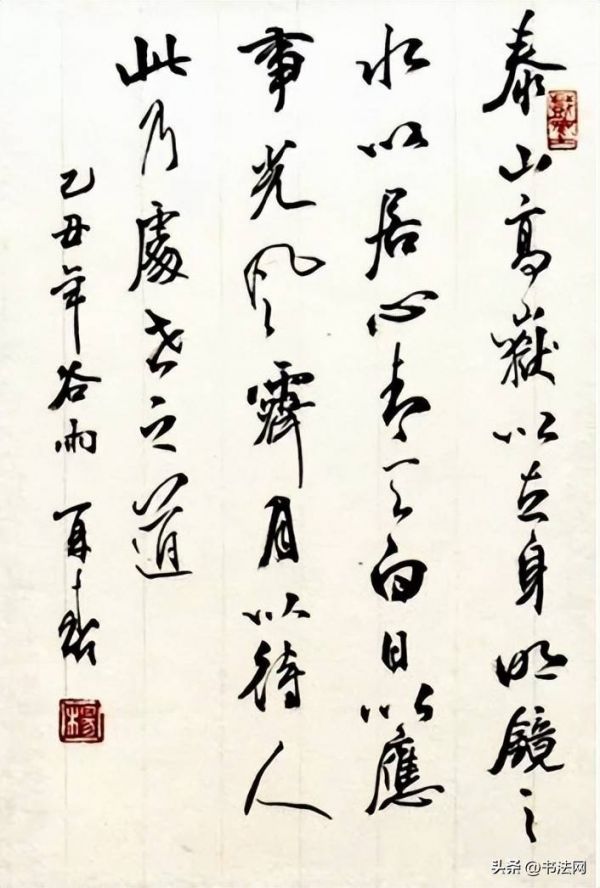 泰山高嶽以立身明鏡止
水以居心青天白日以應
事光風霽月以待人
此乃處世之道
己丑年谷雨
头条 @书法网